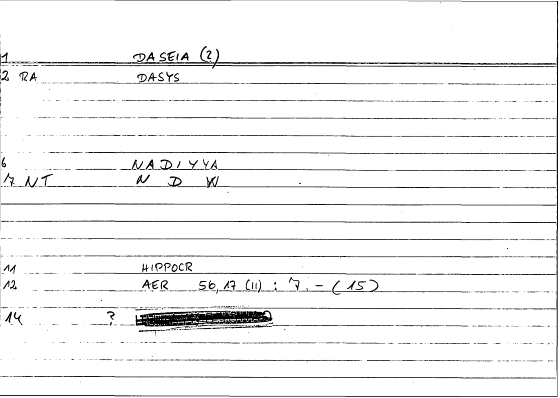 1 DASEIA (2)
2 RA DASYS
6 NADIYYA
7 NT N D W
11 HIPPOCR
12 AER 56,17 (11) : 7. - (15)
14 ?